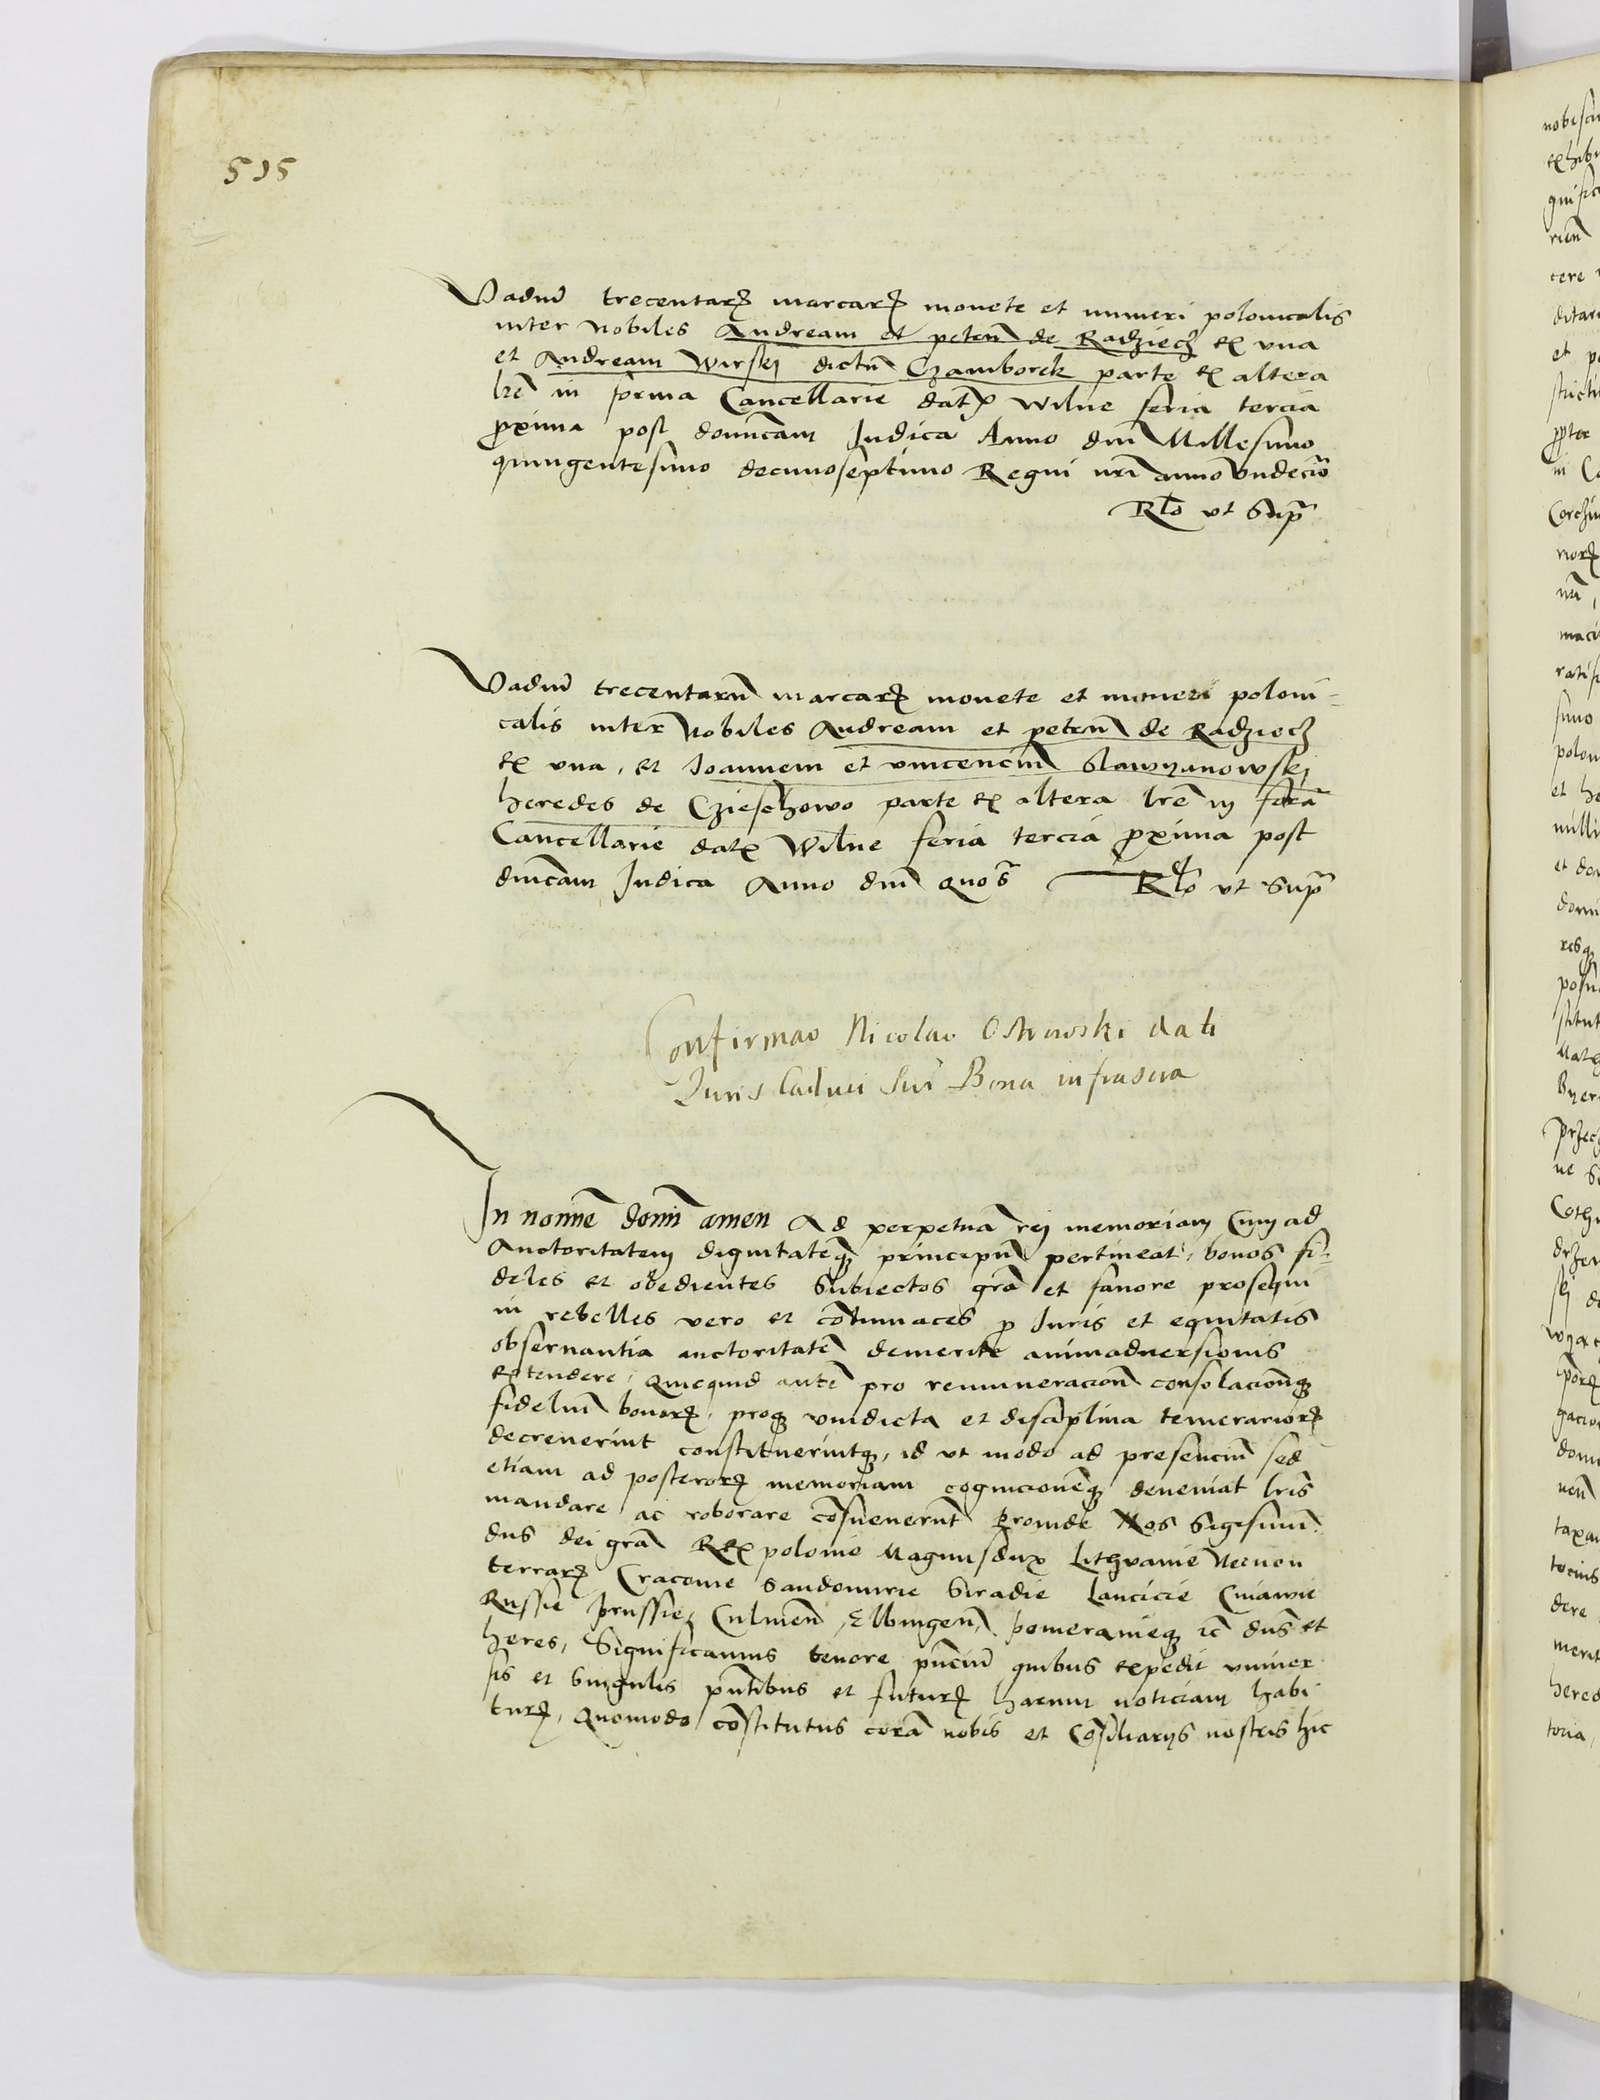 515
Vadiū trecentarꝝ marcarꝝ monete et numeri polonicalis
inter Nobiles Andream et petrū de Radziecz ex vna
et Andream Wirskj dictū Czamborek parte ex altera
lrē in forma Cancellarie datꝭ Wilne feria tercia
ꝓxima post dominicam Judica Anno dnī Millesimo
quingentesimo decimoseptimo Regni nrī anno vndecīo
Rlo vt Supᷓ
Vadiū trecentarū marcarꝝ monete et numeri poloni-
calis inter Nobiles Andream et petrū de Radziecz
ex vna, et Joannem et vincenciū Slawyanowskj
heredes de Czieschowo parte ex altera lrē in forā
Cancellarie datꝭ Wilne feria tercia ꝓxima post
dnicam Judica Anno dnī quo sᷓ Rlo vt Supᷓ
Confirmao Nicolao Ostrowski dati
Juris Caduci Sup Bona infrascra
In nomīe domī amen Ad perpetuā rej memoriam Cum ad
Auctoritatem dignitatēqꝫ principū pertineat, bonos fi-
deles et obedientes Subiectos grā et fauore prosequi
in rebelles vero et cōtumaces ꝓ Juris et equitatis
obseruantia auctoritatē demerite animaduersionis
extendere, Quicquid autē pro remuneracionē consolacionēqꝫ
fideliū bonorꝝ, proqꝫ vindicta et disciplina temerariorꝝ
decreuerint constituerintqꝫ, id vt modo ad presenciū sed
etiam ad posterorꝝ memoriam cognicionēqꝫ deueniat lris
mandare ac roborare cōsueuerūt Proinde Nos Sigismū-
dus dei grā Rex polonie Magnus dux Lithvanie Necnon
terrarꝝ Cracouie Sandomirie Siradie Lancicie Cuiawie
Russie prussie, Culmēn, Elbingēn, pomeranieqꝫ ꝛc dnus et
heres, Significamus tenore pn̄ciū quibus expedit vniuer
sis et Singulis pn̄tibus et futurꝝ harum noticiam habi
turꝝ, Quomodo cōstitutus corā nobis et Cōsiliarijs nostris hic